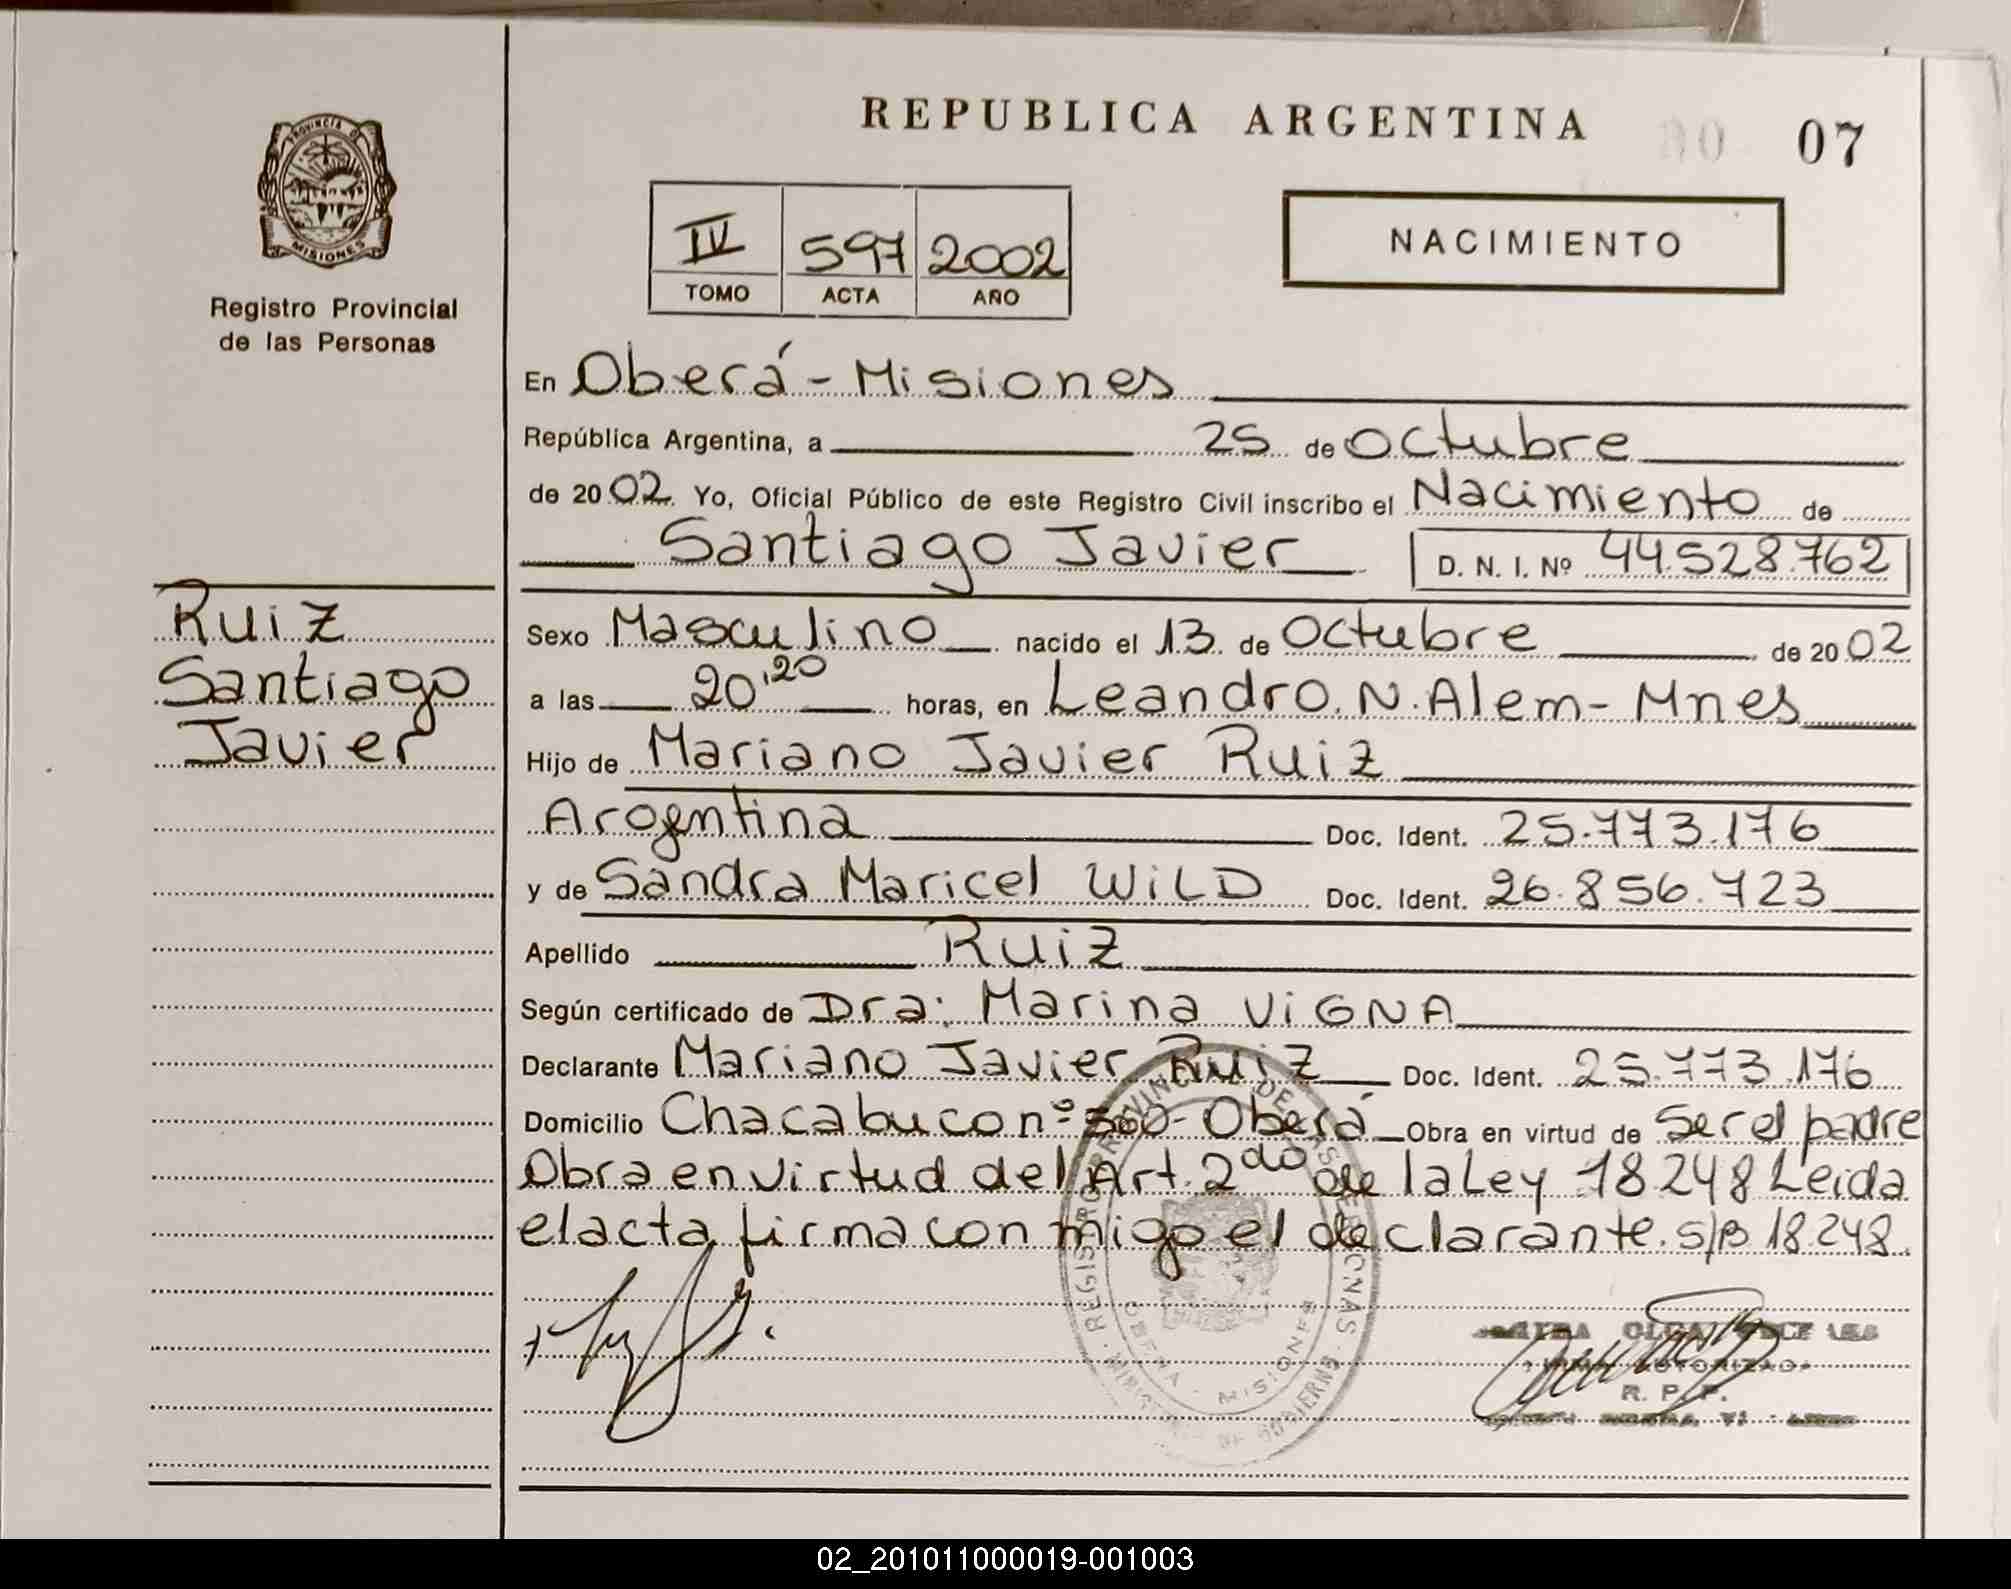 REPUBLICA ARGENTINA
00 07
PROVINCIA DE
MISIONES
Registro Provincial
de las Personas
IV 597 2002
TOMO ACTA AÑO
NACIMIENTO
En Oberá - Misiones
República Argentina, a 25 de Octubre
de 2002 Yo, Oficial Público de este Registro Civil inscribo el Nacimiento de
Santiago Javier D. N. I. Nº 44.528.762
Ruiz
Santiago
Javier
Sexo Masculino nacido el 13 de Octubre de 2002
a las 20,20 horas, en Leandro. N. Alem - Mnes
Hijo de Mariano Javier Ruiz
Argentina Doc. Ident. 25.773.176
y de Sandra Maricel WiLD Doc. Ident. 26.856.723
Apellido Ruiz
Según certificado de Dra: Marina ViGNA
Declarante Mariano Javier Ruiz Doc. Ident. 25.773.176
Domicilio Chacabuco nº 560 - Oberá Obra en virtud de Ser el padre
Obra en virtud del Art. 2do de la Ley 18248 Leida
el acta firma con migo el declarante. s/B 18.248.
REGISTRO PROVINCIAL DE LAS PERSONAS
OBERA - MISIONES
R. P. P.
02_201011000019-001003